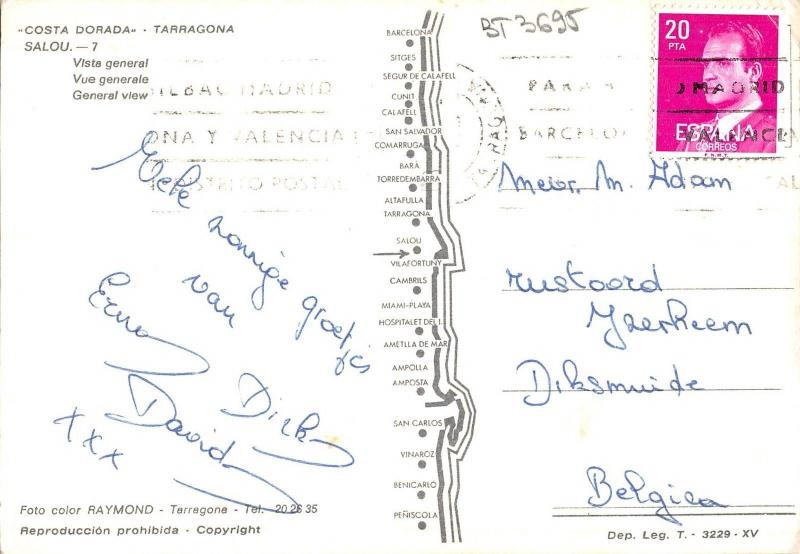 "COSTA DORADA" - TARRAGONA
SALOU. — 7
Vista general
Vue generale
General view
BT 3695
20
PTA
ESPAÑA
CORREOS
F.N.M.T.
BILBAO MADRID
ONA Y VALENCIA
DISTRITO POSTAL
PARA
BARCELO
MADRID
VALENCIA
BARCELONA
SITGES
SEGUR DE CALAFELL
CUNIT
CALAFELL
SAN SALVADOR
COMARRUGA
BARÁ
TORREDEMBARRA
ALTAFULLA
TARRAGONA
SALOU
VILAFORTUNY
CAMBRILS
MIAMI-PLAYA
HOSPITALET DEL I.
AMETLLA DE MAR
AMPOLLA
AMPOSTA
SAN CARLOS
VINAROZ
BENICARLO
PEÑISCOLA
Vele zonnige groetjes
van
Erna
Dirk
David
xxx
Mevr. M. Adam
rustoord
Yzerheem
Diksmuide
Belgica
Foto color RAYMOND - Tarragona - Tel. 20 26 35
Reproducción prohibida - Copyright
Dep. Leg. T. - 3229 - XV